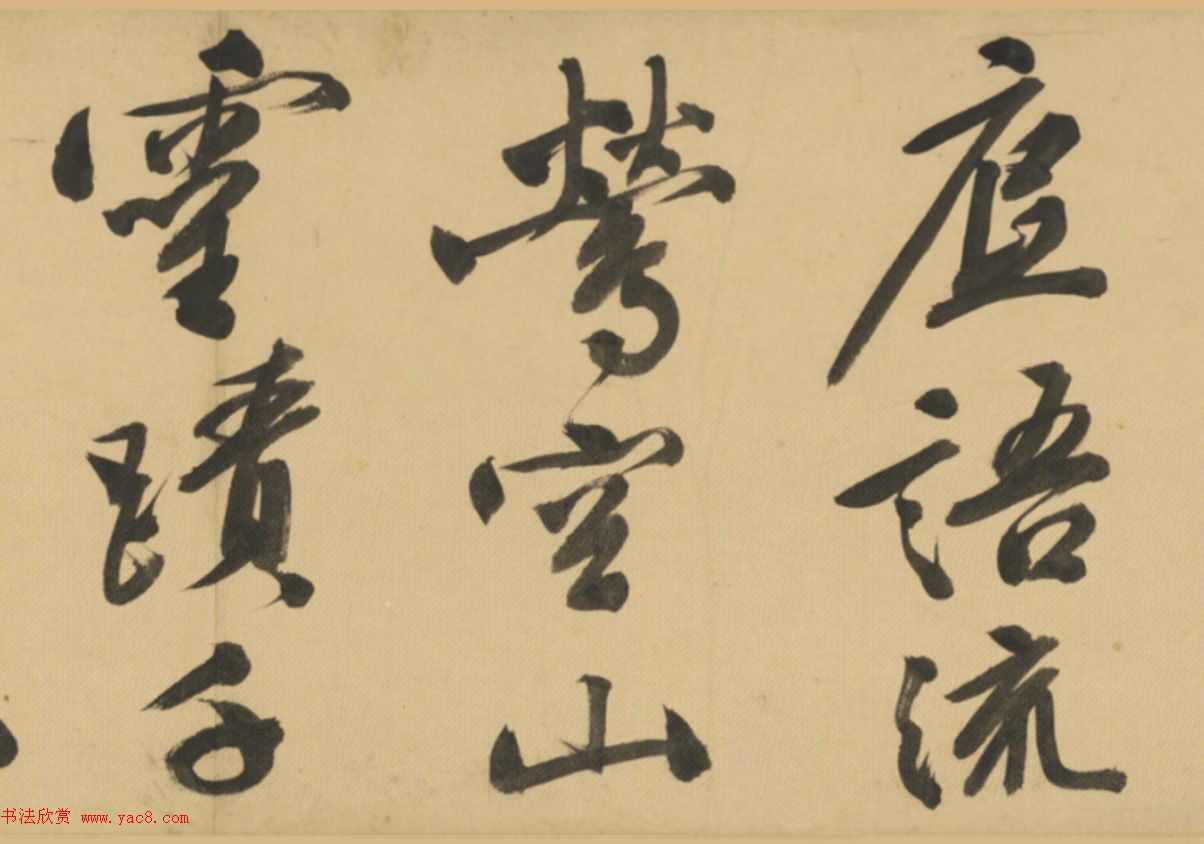 庭語流
鶯空山
靈蹟千
书法欣赏 www.yac8.com